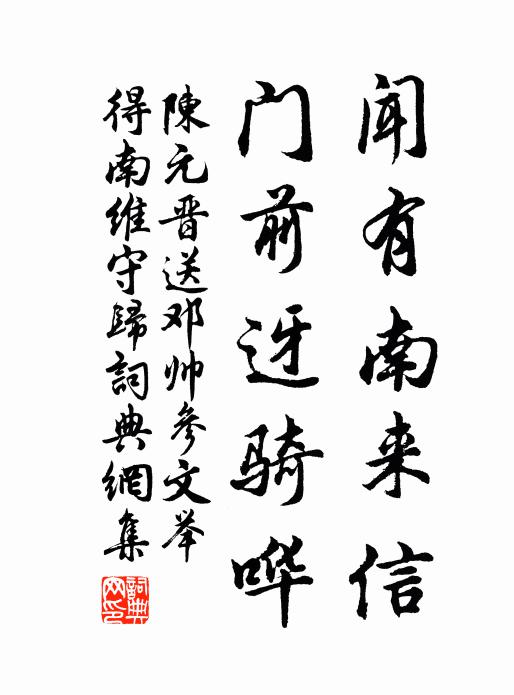 闻有南来信
门前迓骑哗
陳元晋送邓帅參文举
得南维守歸詞典網集
詞典網印